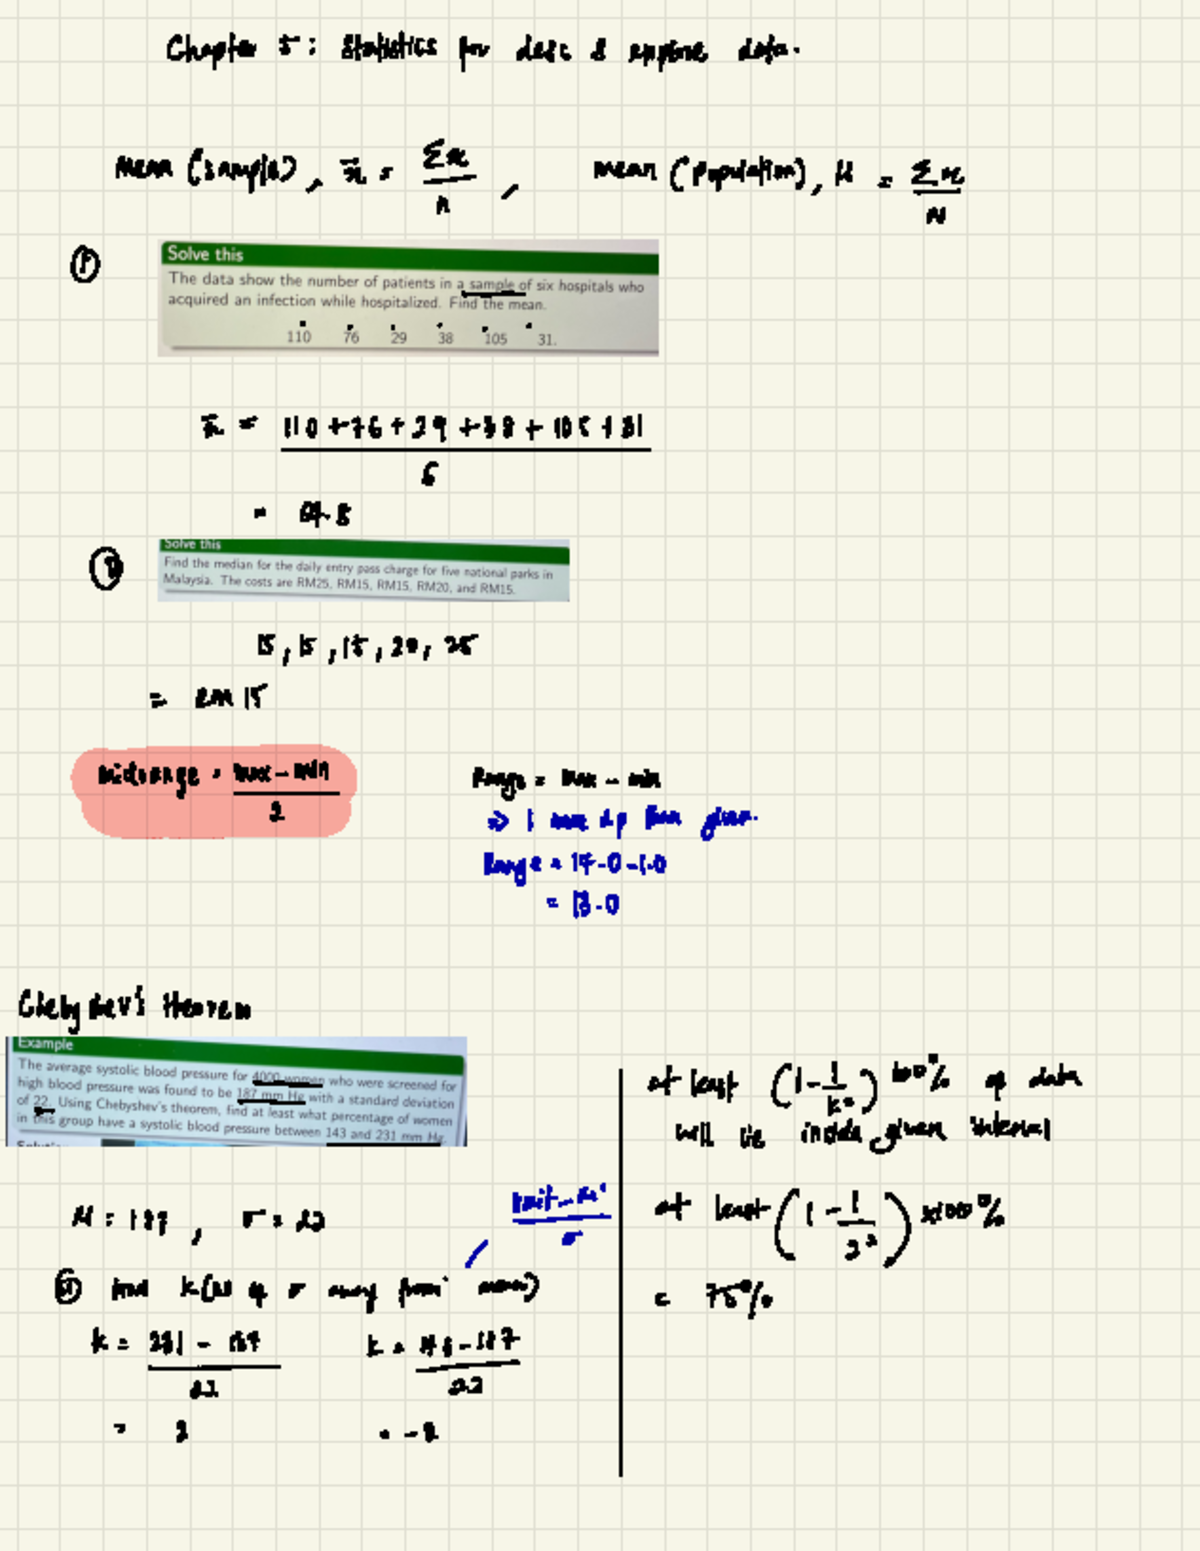 Chapter 5: Statistics for desc & explore data.
mean (sample), x̄ = Σx/n , mean (population), μ = Σx/N
①
Solve this
The data show the number of patients in a sample of six hospitals who
acquired an infection while hospitalized. Find the mean.
110 76 29 38 105 31.
x̄ = 110+76+29+38+105+31
6
= 64.8
Solve this
Find the median for the daily entry pass charge for five national parks in
Malaysia. The costs are RM25, RM15, RM15, RM20, and RM15.
15, 15, 15, 20, 25
= RM 15
midrange = max - min
2
Range = max - min
⇒ 1 more dp than given.
Range = 14.0 - 1.0
= 13.0
Chebyshev's theorem
Example
The average systolic blood pressure for 4000 women who were screened for
high blood pressure was found to be 187 mm Hg with a standard deviation
of 22. Using Chebyshev's theorem, find at least what percentage of women
in this group have a systolic blood pressure between 143 and 231 mm Hg.
μ = 187, σ = 22
find k (no of σ away from mean)
k = 231 - 187
22
= 2
k = 143 - 187
22
= -2
at least (1 - 1/k²) 100% of data
will lie inside given interval
at least (1 - 1/2²) x100%
= 75%